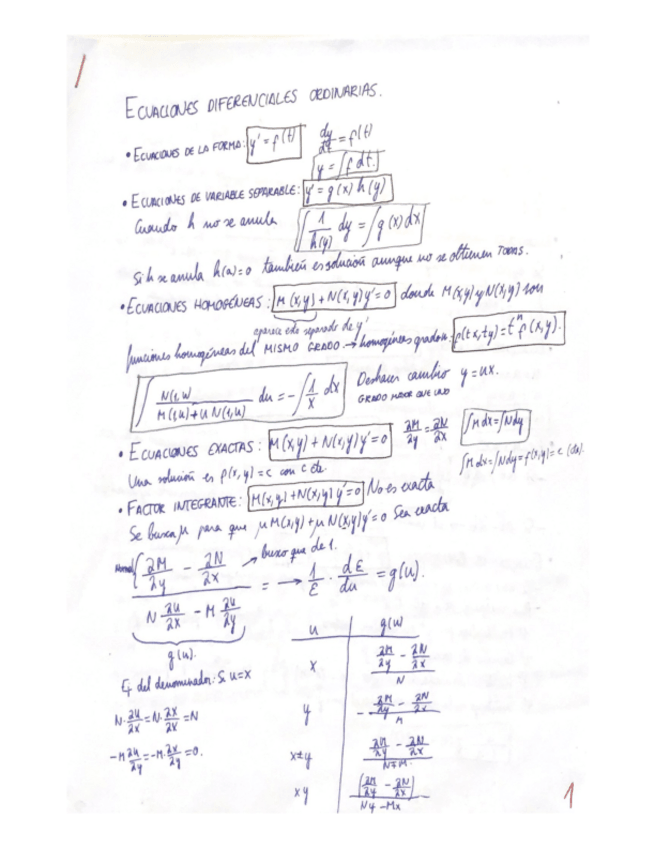 1
ECUACIONES DIFERENCIALES ORDINARIAS.
• ECUACIONES DE LA FORMA: y' = f(t) dy/dt = f(t)
y = ∫ f dt.
• ECUACIONES DE VARIABLE SEPARABLE: y' = g(x) h(y)
Cuando h no se anula ∫ 1/h(y) dy = ∫ g(x) dx
Si h se anula h(a)=0 también es solución aunque no se obtienen TODAS.
• ECUACIONES HOMOGÉNEAS: M(x,y) + N(x,y) y' = 0 donde M(x,y) y N(x,y) son
aparece solo separado de y'
funciones homogéneas del MISMO GRADO. → homogéneas grado n: f(tx,ty) = t^n f(x,y).
∫ N(1,u)/(M(1,u)+u N(1,u)) du = -∫ 1/x dx Deshacer cambio y = ux.
• ECUACIONES EXACTAS: M(x,y) + N(x,y) y' = 0 ∂M/∂y = ∂N/∂x ∫M dx = ∫N dy
Una solución es f(x,y) = c con c cte. ∫M dx = ∫N dy = f(x,y) = c (cte).
• FACTOR INTEGRANTE: M(x,y) + N(x,y) y' = 0 No es exacta
Se busca μ para que μ M(x,y) + μ N(x,y) y' = 0 sea exacta
(∂M/∂y - ∂N/∂x)/(N ∂u/∂x - M ∂u/∂y) = → 1/ε · dε/du = g(u).
g(u).
u g(u)
x (∂M/∂y - ∂N/∂x)/N
Ej del denominador: Si u=x
y -(∂M/∂y - ∂N/∂x)/M
N·∂u/∂x = N·∂x/∂x = N
-M ∂u/∂y = -M·∂x/∂y = 0.
x±y (∂M/∂y - ∂N/∂x)/(N∓M)
xy (∂M/∂y - ∂N/∂x)/(Ny - Mx)
1